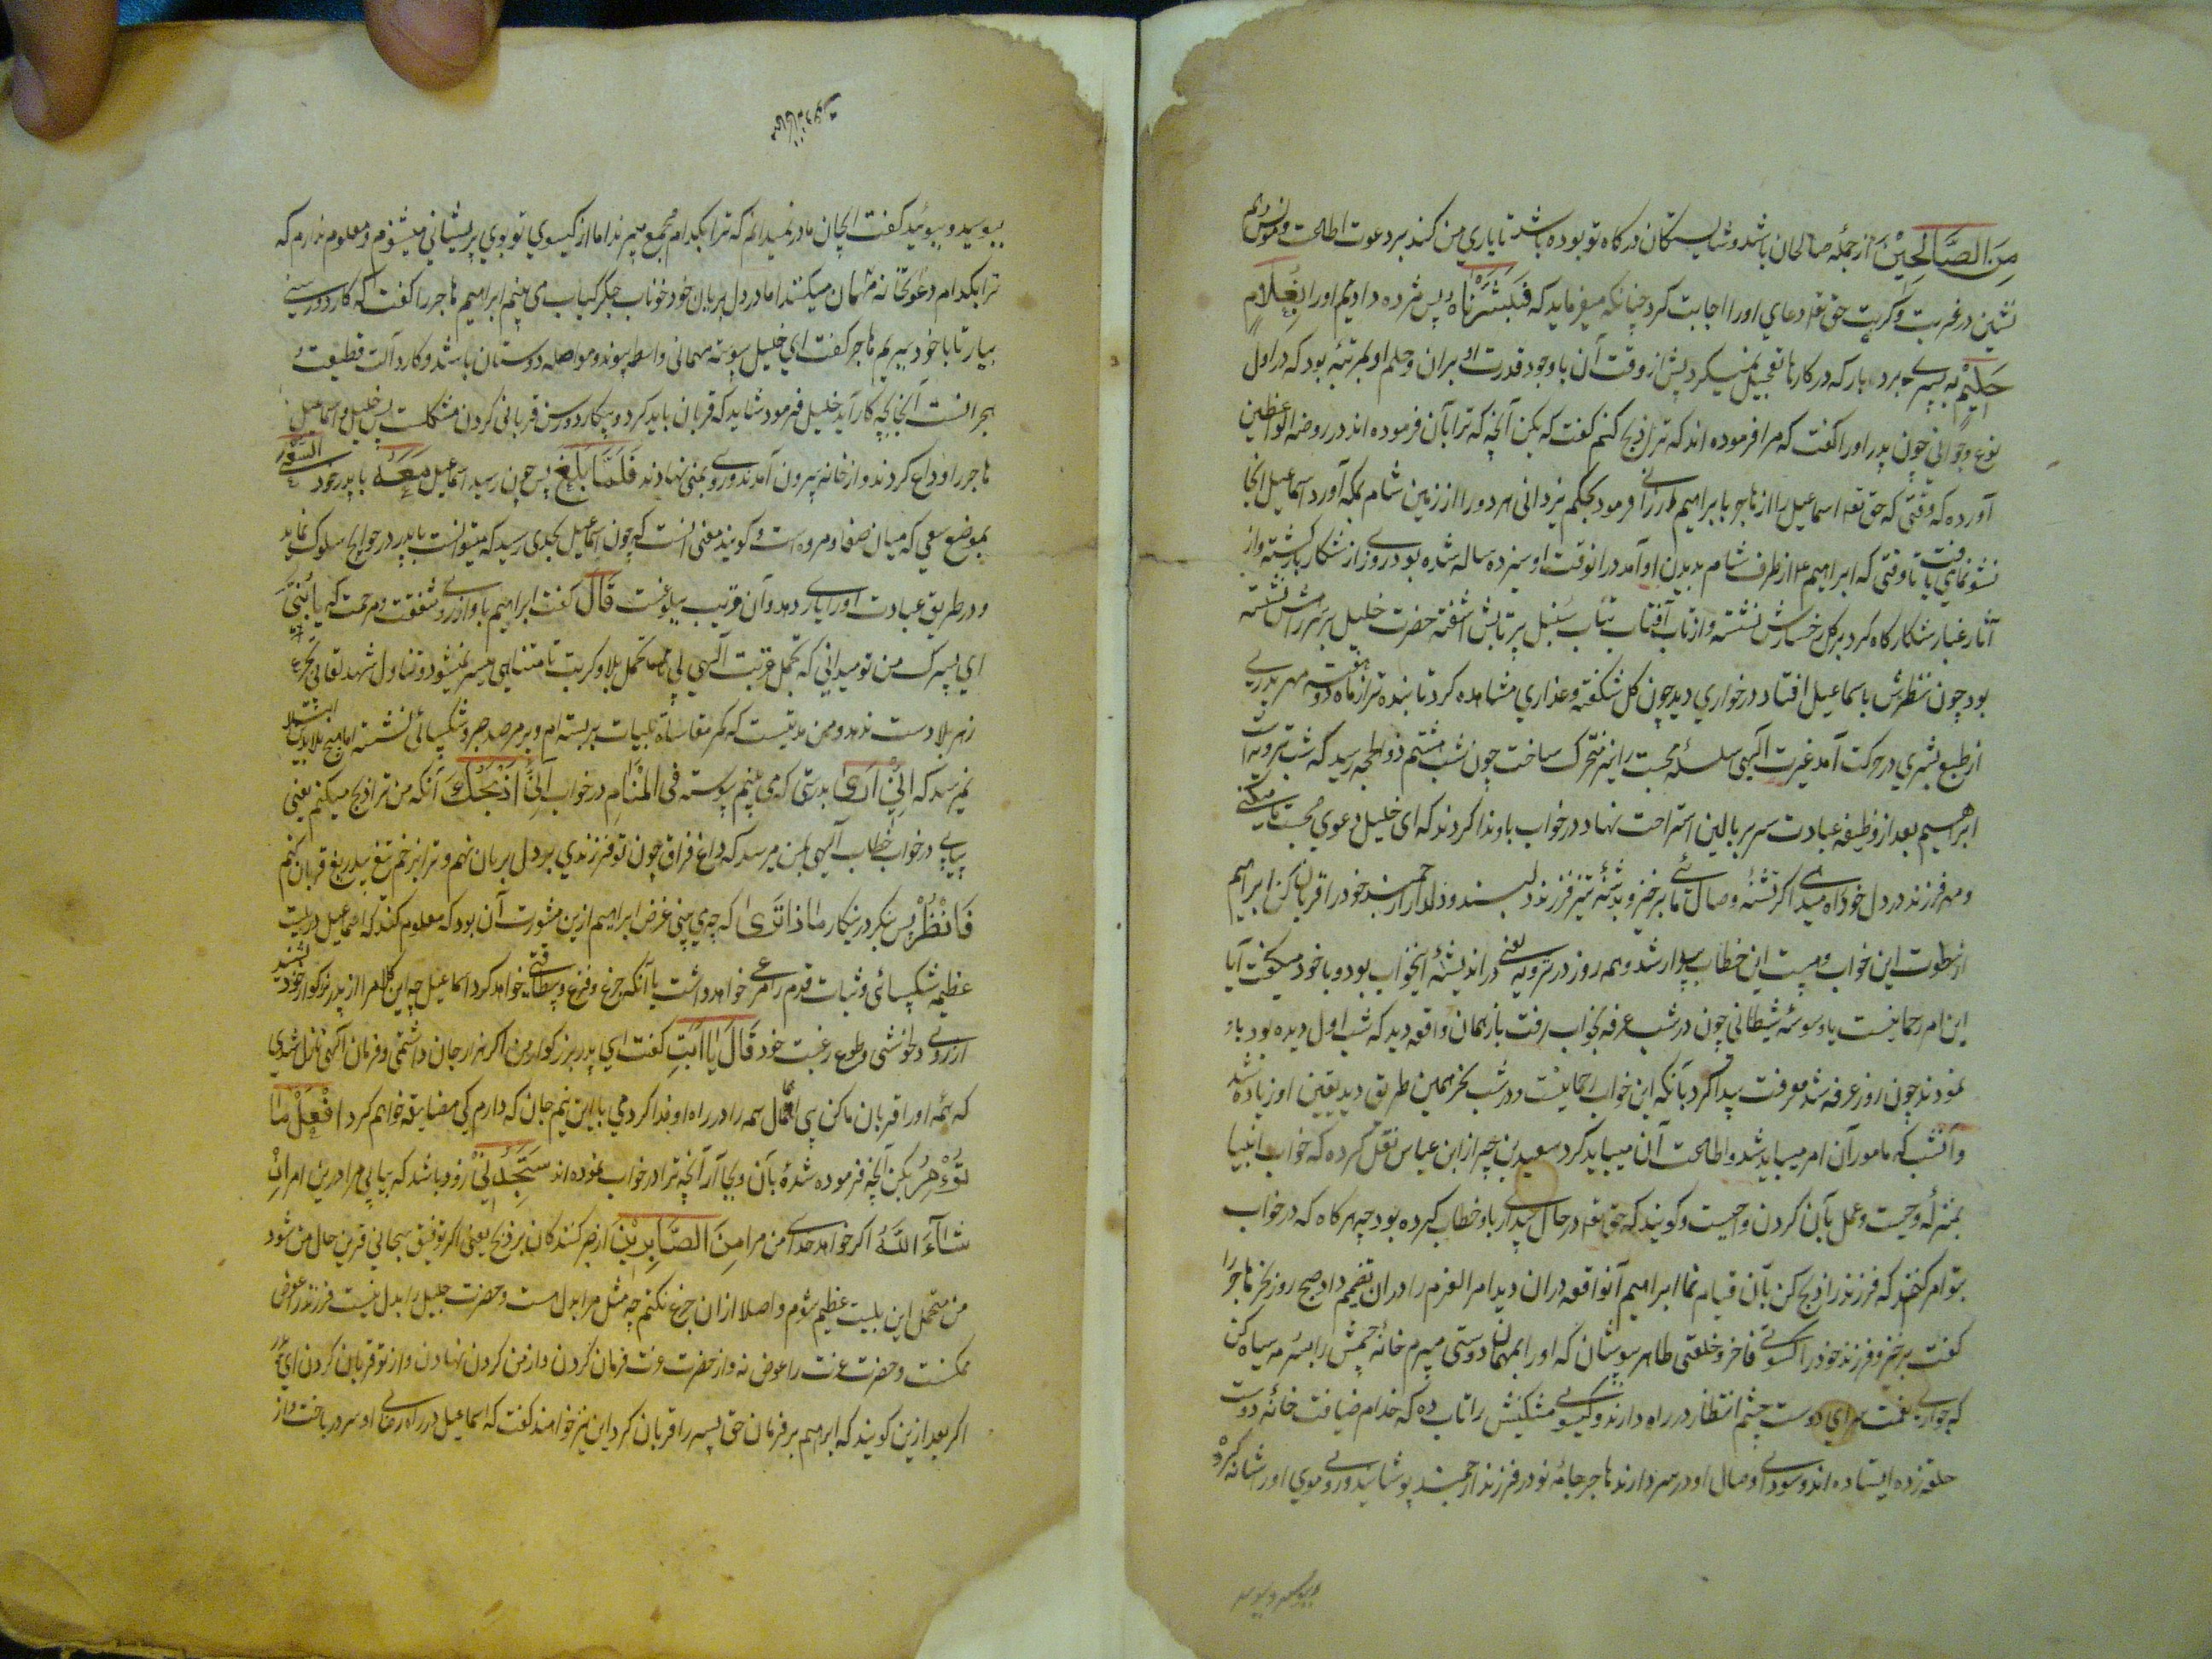 مِنَ الصَّالِحِيْنَ از جملهٔ صالحان باشد و شایستکان درکاه تو بوده باشد تا یاری من کنند بر دعوت اطاعت و مونس
نشین در غربت و کربت حق تعه دعای او را اجابت کرد چنانکه میفرماید که فَبَشَّرْنَاهُ پس مژده دادیم او را بِغُلَامٍ
حَلِيْمٍ به پسرے بردبار که در کارها تعجیل نمیکرد پیش از وقت آن با وجود قدرت او بران و حلم او بمرتبهٔ بود که در اول
نوع جوانی چون پدر او را کفت که مرا فرموده اند که ترا ذبح کنم کفت که بکن آنچه که ترا بآن فرموده اند در روضة الواعظین
آورده که وقتی که حق تعه اسماعیل را از هاجر بابراهیم ارزانی فرمود بحکم یزدانی هر دو را از زمین شام بمکه آورد اسماعیل انجا
نشونمای یافت تا وقتی که ابراهیم ع از طرف شام بدیدن او آمد در انوقت او سیزده ساله شده بود روزے از شکار بازکشته و از
آثار غبار شکارکاه کرد بر کل رخسارش نشسته و از تاب آفتاب تاب سنبل پرتابش آشفته حضرت خلیل بر سر راهش نشسته
بود چون نظرش باسماعیل افتاد رخسارے دید چون کل شکفته و عذاری مشاهده کرد تابنده تر از ماه دو هفته مهر پدرے
از طبع بشری در حرکت آمد غیرت الهی سلسلهٔ محبت را نیز متحرک ساخت چون شب هشتم ذو الحجه رسید که شب ترویه است
ابراهیم بعد از وظیفه عبادت سر بر بالین استراحت نهاد در خواب باو ندا کردند که ای خلیل دعوی محبت ما میکنے
و مهر فرزند در دل خود راه میدهی اکر تشنهٔ وصال مائے برخیز و بدشنهٔ تیز فرزند دلبند و دلدار ارجمند خود را قربان کن ابراهیم
از سطوت این خواب و هیبت این خطاب بیدار شد و همه روز در ترویه یعنی در اندیشهٔ اینخواب بود و با خود میکفت آیا
این امر رحمانیست یا وسوسهٔ شیطانی چون در شب عرفه بخواب رفت باز همان واقعه دید که شب اول دیده بود باز
نمودند چون روز عرفه شد معرفت پیدا کرد بآنکه این خواب رحمانیست و در شب نحر همین طریق دید یقین او زیاده شد
و دانست که مامور آن امر میباید شد و اطاعت آن میباید کرد سعید بن جبیر از ابن عباس نقل کرده که خواب انبیا
بمنزلهٔ وحیست و عمل بآن کردن واجبست و کویند که حق تعه در حال بیدارے باو خطاب کرده بود چه هرکاه که در خواب
بتو امر کنند که فرزند را ذبح کن بآن قیام نما ابراهیم آنواقعه دران دید امر الزم را دران تصمیم داد صبح روز نحر هاجر را
کفت برخیز و فرزند خود را کسوتے فاخر و خلعتی طاهر بپوشان که او را بمهمان دوستی میبرم خانهٔ چشمش را بسرمه سیاه کن
که جوارے نعمت سرای دوست چشم انتظار در راه دارند و کیسوے مشکینش را تاب ده که خدام ضیافت خانهٔ دوست
حلقه زده ایستاده اند و سودے وصال او در سر دارند هاجر جامهٔ نو در فرزند ارجمند پوشانید و روے و موی او را شانه کرد
ببوسید و ببوئید کفت ایجان مادر نمیدانم که ترا بکدام مجمع میبرند اما از کیسوی تو بوی پریشانی میشنوم و معلوم ندارم که
ترا بکدام دعوتخانه مهمان میکنند اما در دل بریان خود خوناب جکر کباب می بینم ابراهیم هاجر را کفت که کارد و رسنے
بیار تا با خود ببریم هاجر کفت ای خلیل پیوسته مهمانی واسطه پیوند و مواصلهٔ دوستان باشد و کارد آلت قطیعت و
هجرانست آنجا بچه کار آید خلیل فرمود شاید که قربان باید کرد و بیکارد و رسن قربانی کردن مشکلست پس خلیل و اسماعیل
هاجر را وداع کردند و از خانه بیرون آمدند و روے بمنی نهادند فَلَمَّا بَلَغَ پس چون رسید اسماعیل مَعَهُ با پدر خود السَّعْيَ
بموضع سعی که میان صفا و مروه است و کویند معنی آنست که چون اسماعیل بحدی رسید که میتوانست با پدر در حوایج سلوک نماید
و در طریق عبادت او را یارے دهد و آن قریب ببلوغست قَالَ کفت ابراهیم با او از روے شفقت و مرحمت که يَا بُنَيَّ
ای پسرک من تو میدانی که تحمل قربت الهی بی تحمل بلا و کربت نامتناهی میسر نمیشود و تناول شهد لقا بی تجرع
زهر بلا دست ندهد و من مدتیست که کمر مقاساة بلیات بر بسته ام و بر مرصد صبر و شکیبائی نشسته اما هیچ بلا بدین ابتلا
نمیرسد که اِنِّيْ اَرَى بدرستی که می بینم پیوسته فِي الْمَنَامِ در خواب اَنِّيْ اَذْبَحُكَ آنکه من ترا ذبح میکنم یعنی
پیاپے در خواب خطاب الهی بمن میرسد که داغ فراق چون تو فرزندی بر دل بریان نهم و ترا بزخم تیغ بیدریغ قربان کنم
فَانْظُرْ پس بنکر در ینکار مَاذَا تَرَى که چه می بینی غرض ابراهیم ازین مشورت آن بود که معلوم کند که اسماعیل در بلیت
عظیمه شکیبائی و ثبات قدم را مرعے خواهد داشت یا آنکه جزع و فزع و بیطاقتے خواهد کرد اسماعیل چون این کلام را از پدر بزرکوار خود شنید
از روے دلخوشی و طوع و رغبت خود قَالَ يَا اَبَتِ کفت ای پدر بزرکوار من اکر هزار جان داشتمی و فرمان الهی نازل شدی
که همه را قربان ما کن بی اهمال همه را در راه او فدا کردمی با این نیم جان که دارم کی مضایقه خواهم کرد اِفْعَلْ مَا
تُؤْمَرُ بکن آنچه فرموده شدهٔ بآن و بجا آر آنچه ترا در خواب نموده اند سَتَجِدُنِيْ زود باشد که بیابی مرا درین امر اِنْ
شَاءَ اللّٰهُ اکر خواهد خدای من مرا مِنَ الصَّابِرِيْنَ از صبر کنندکان بر ذبح یعنی اکر توفیق سبحانی قرین حال من شود
من متحمل این بلیت عظیم شوم و اصلا از ان جزع نکنم چه مثل مرا بدل هست و حضرت جلیل را بدل نیست فرزند را عوض
ممکنست و حضرت عزت را عوض نه و از حضرت عزت فرمان کردن و از من کردن نهادن و از تو قربان کردن ای پدر
اکر بعد ازین کویند که ابراهیم بر فرمان حق پسر را قربان کرد این نیز خواهند کفت که اسماعیل در راه رضای او سر در باخت و از